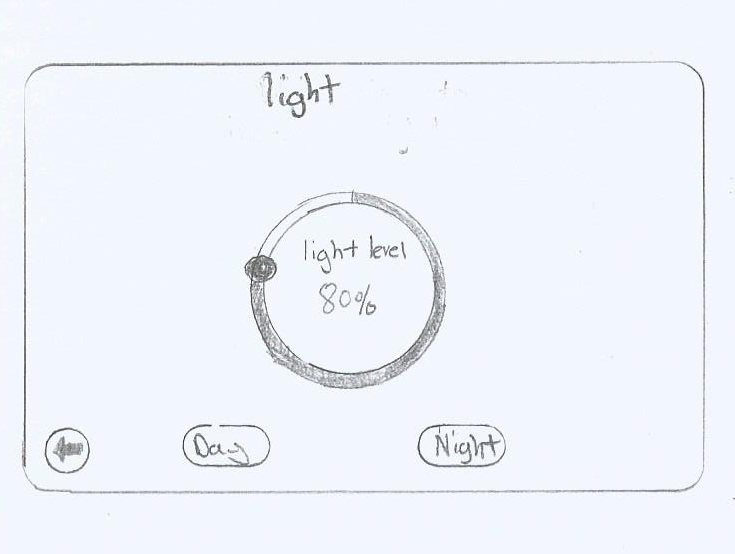 light
light level
80%
Day
Night